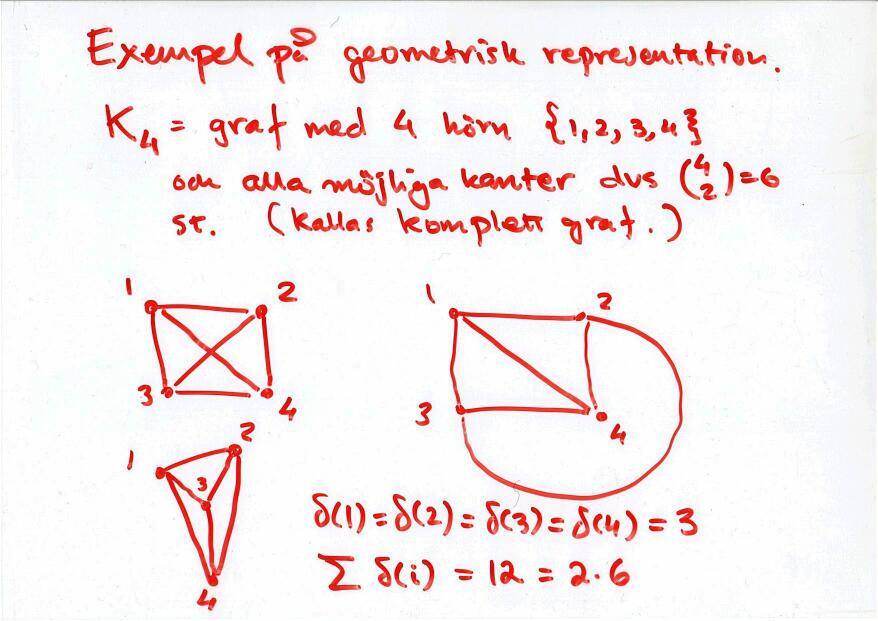 Exempel på geometrisk representation.
K₄ = graf med 4 hörn {1,2,3,4}
och alla möjliga kanter dvs (4 2)=6
st. (kallas komplett graf.)
1 2
3 4
1 2
3 4
1 2
3
4
δ(1)=δ(2)=δ(3)=δ(4)=3
∑ δ(i) = 12 = 2·6